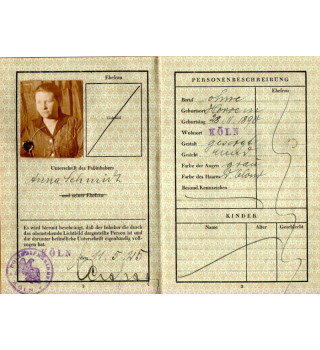 Ehefrau
Unterschrift des Paßinhabers
Anna Schmitz
und seiner Ehefrau
Es wird hiermit bescheinigt, daß der Inhaber die durch
das obenstehende Lichtbild dargestellte Person ist und
die darunter befindliche Unterschrift eigenhändig voll-
zogen hat.
KÖLN, den
2
PERSONENBESCHREIBUNG
Ehefrau
Beruf ohne
Geburtsort
Geburtstag
Wohnort KÖLN
Gestalt gesetzt
Gesicht
Farbe der Augen grau
Farbe des Haares blond
Besond. Kennzeichen
KINDER
Name Alter Geschlecht
3